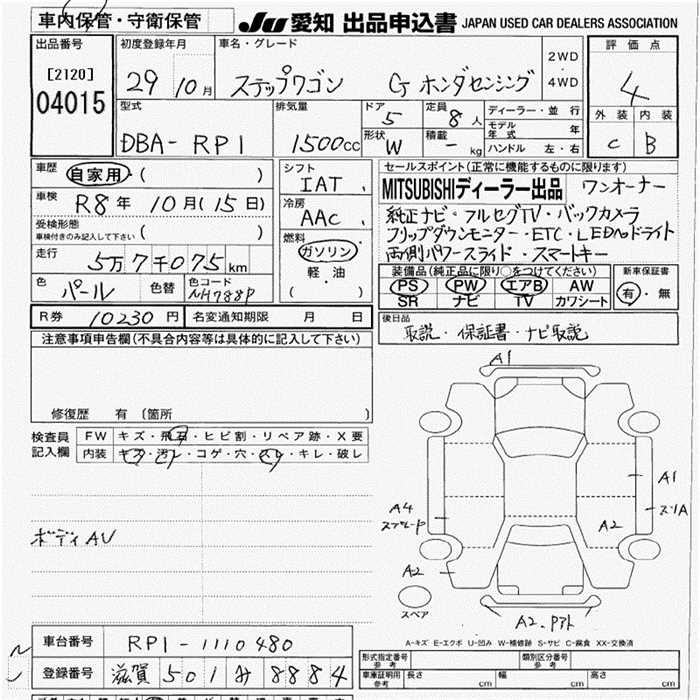 車内保管・守衛保管
JU 愛知 出品申込書 JAPAN USED CAR DEALERS ASSOCIATION
出品番号
[2120]
04015
初度登録年月
29 10月
車名・グレード
ステップワゴン G ホンダセンシング
2WD
・
4WD
評価点
4
外装 内装
C B
型式
DBA-RP1
排気量
1500cc
ドア 5
形状 W
定員 8人
積載 - kg
ディーラー・並行
モデル年式 年
ハンドル 左・右
車歴 自家用・( )
車検 R8年 10月(15日)
受検形態
車検付きのみ記入して下さい ( )
走行 5万7千075km
色 パール 色替 色コード NH788P
シフト
IAT
冷房
AAC
燃料
ガソリン
軽油
( )
セールスポイント(正常に機能するものに限ります)
MITSUBISHIディーラー出品 ワンオーナー
純正ナビ・フルセグTV・バックカメラ
フリップダウンモニター・ETC・LEDヘッドライト
両側パワースライド・スマートキー
装備品(純正品に限り○をつけてください)
PS PW エアB AW
SR ナビ TV カワシート
新車保証書
有・無
R券 10230円 名変通知期限 月 日
後日品
取説・保証書・ナビ取説
注意事項申告欄(不具合内容等は具体的に記入して下さい)
修復歴 有 (箇所
検査員
記入欄
FW キズ・飛石・ヒビ割・リペア跡・X要
内装 キズ・汚れ・コゲ・穴・スレ・キレ・破レ
ボディAU
A1
A1
スリA
A4
A2
A2
スペア
A2.
A-キズ E-エクボ U-凹み W-補修跡 S-サビ C-腐食 XX-交換済
車台番号 RP1-1110480
登録番号 滋賀 501 み 8884
型式指定番号
参考
類別区分番号
参考
車庫証明用
参考
長さ cm 幅 cm 高さ cm